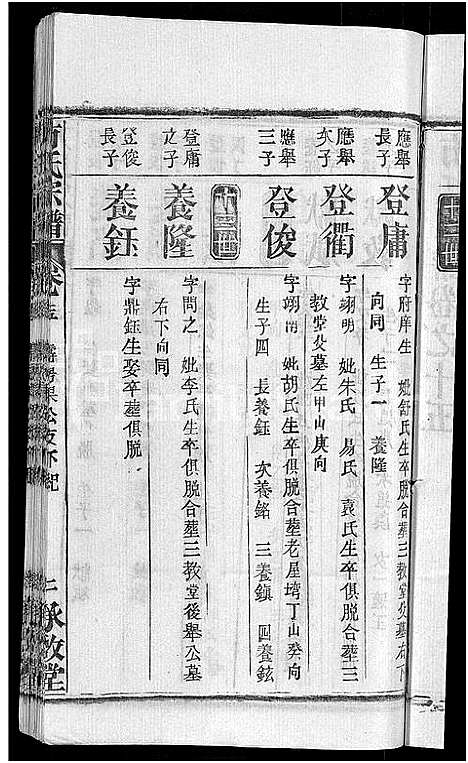 應舉長子
登庸
字府庠生 妣舒氏生卒俱脫合葬三教堂父墓右下
向同 生子一 養隆
應舉次子
登衢
字翊明 妣朱氏 易氏 袁氏生卒俱脫合葬三
教堂父墓左甲山庚向
應舉三子
登俊
字翊 妣胡氏生卒俱脫合葬老屋塆丁山癸向
生子四 長養鈺 次養銘 三養鎮 四養鉉
登庸之子
養隆
字問之 妣李氏生卒俱脫合葬三教堂後舉公墓
右下向同
登俊長子
養鈺
字鼎鈺生娶卒葬俱脫
氏宗譜
承啟堂